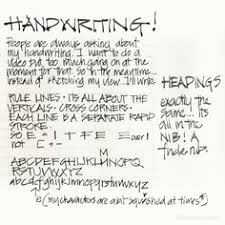 HANDWRITING!
People are always asking about
my handwriting. I want to do a
video but too much going on at the
moment for that. so in the meantime...
instead of sketching my view I'll write
HEADINGS
exactly the
same... its
all in the
NIB! A
fude nib.
RULE LINES · ITS ALL ABOUT THE
VERTICALS. CROSS CORNERS.
EACH LINE IS A SEPARATE RAPID
STROKE.
SO E =
over!
not
ABCDEFGHIJKLMNOPQ
RSTUVWXYZ
abcdefghijklmnopqrstuvwxyz
e (my characters are ain't squished at times)